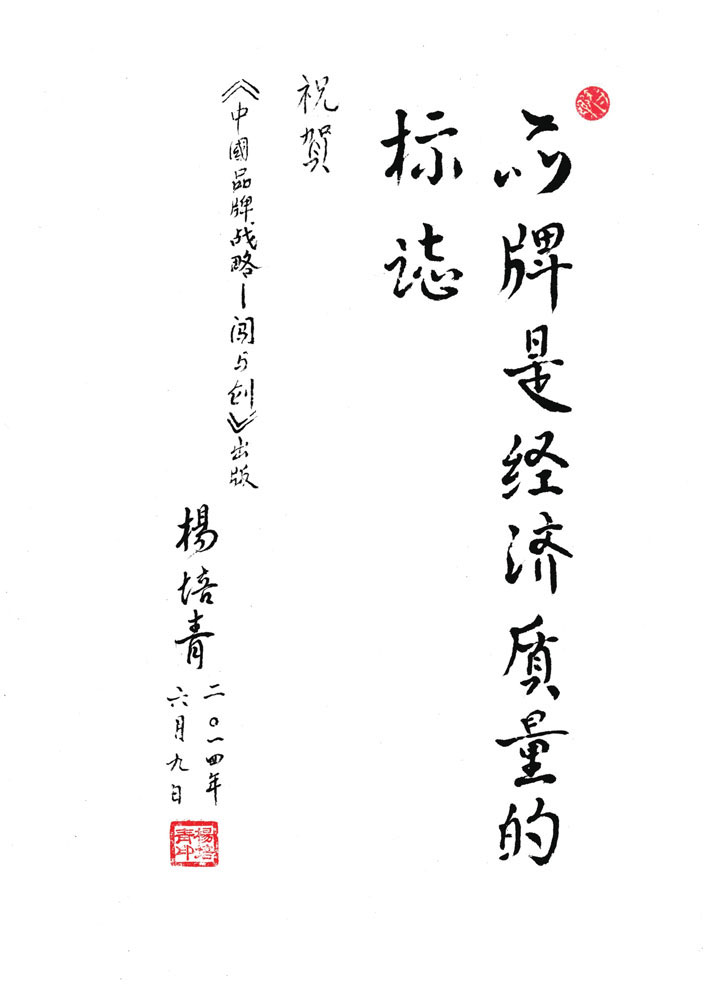 品牌是经济质量的
标誌
祝賀
《中國品牌战略—闯与创》出版
楊培青
二〇一四年
六月九日
楊培
青印